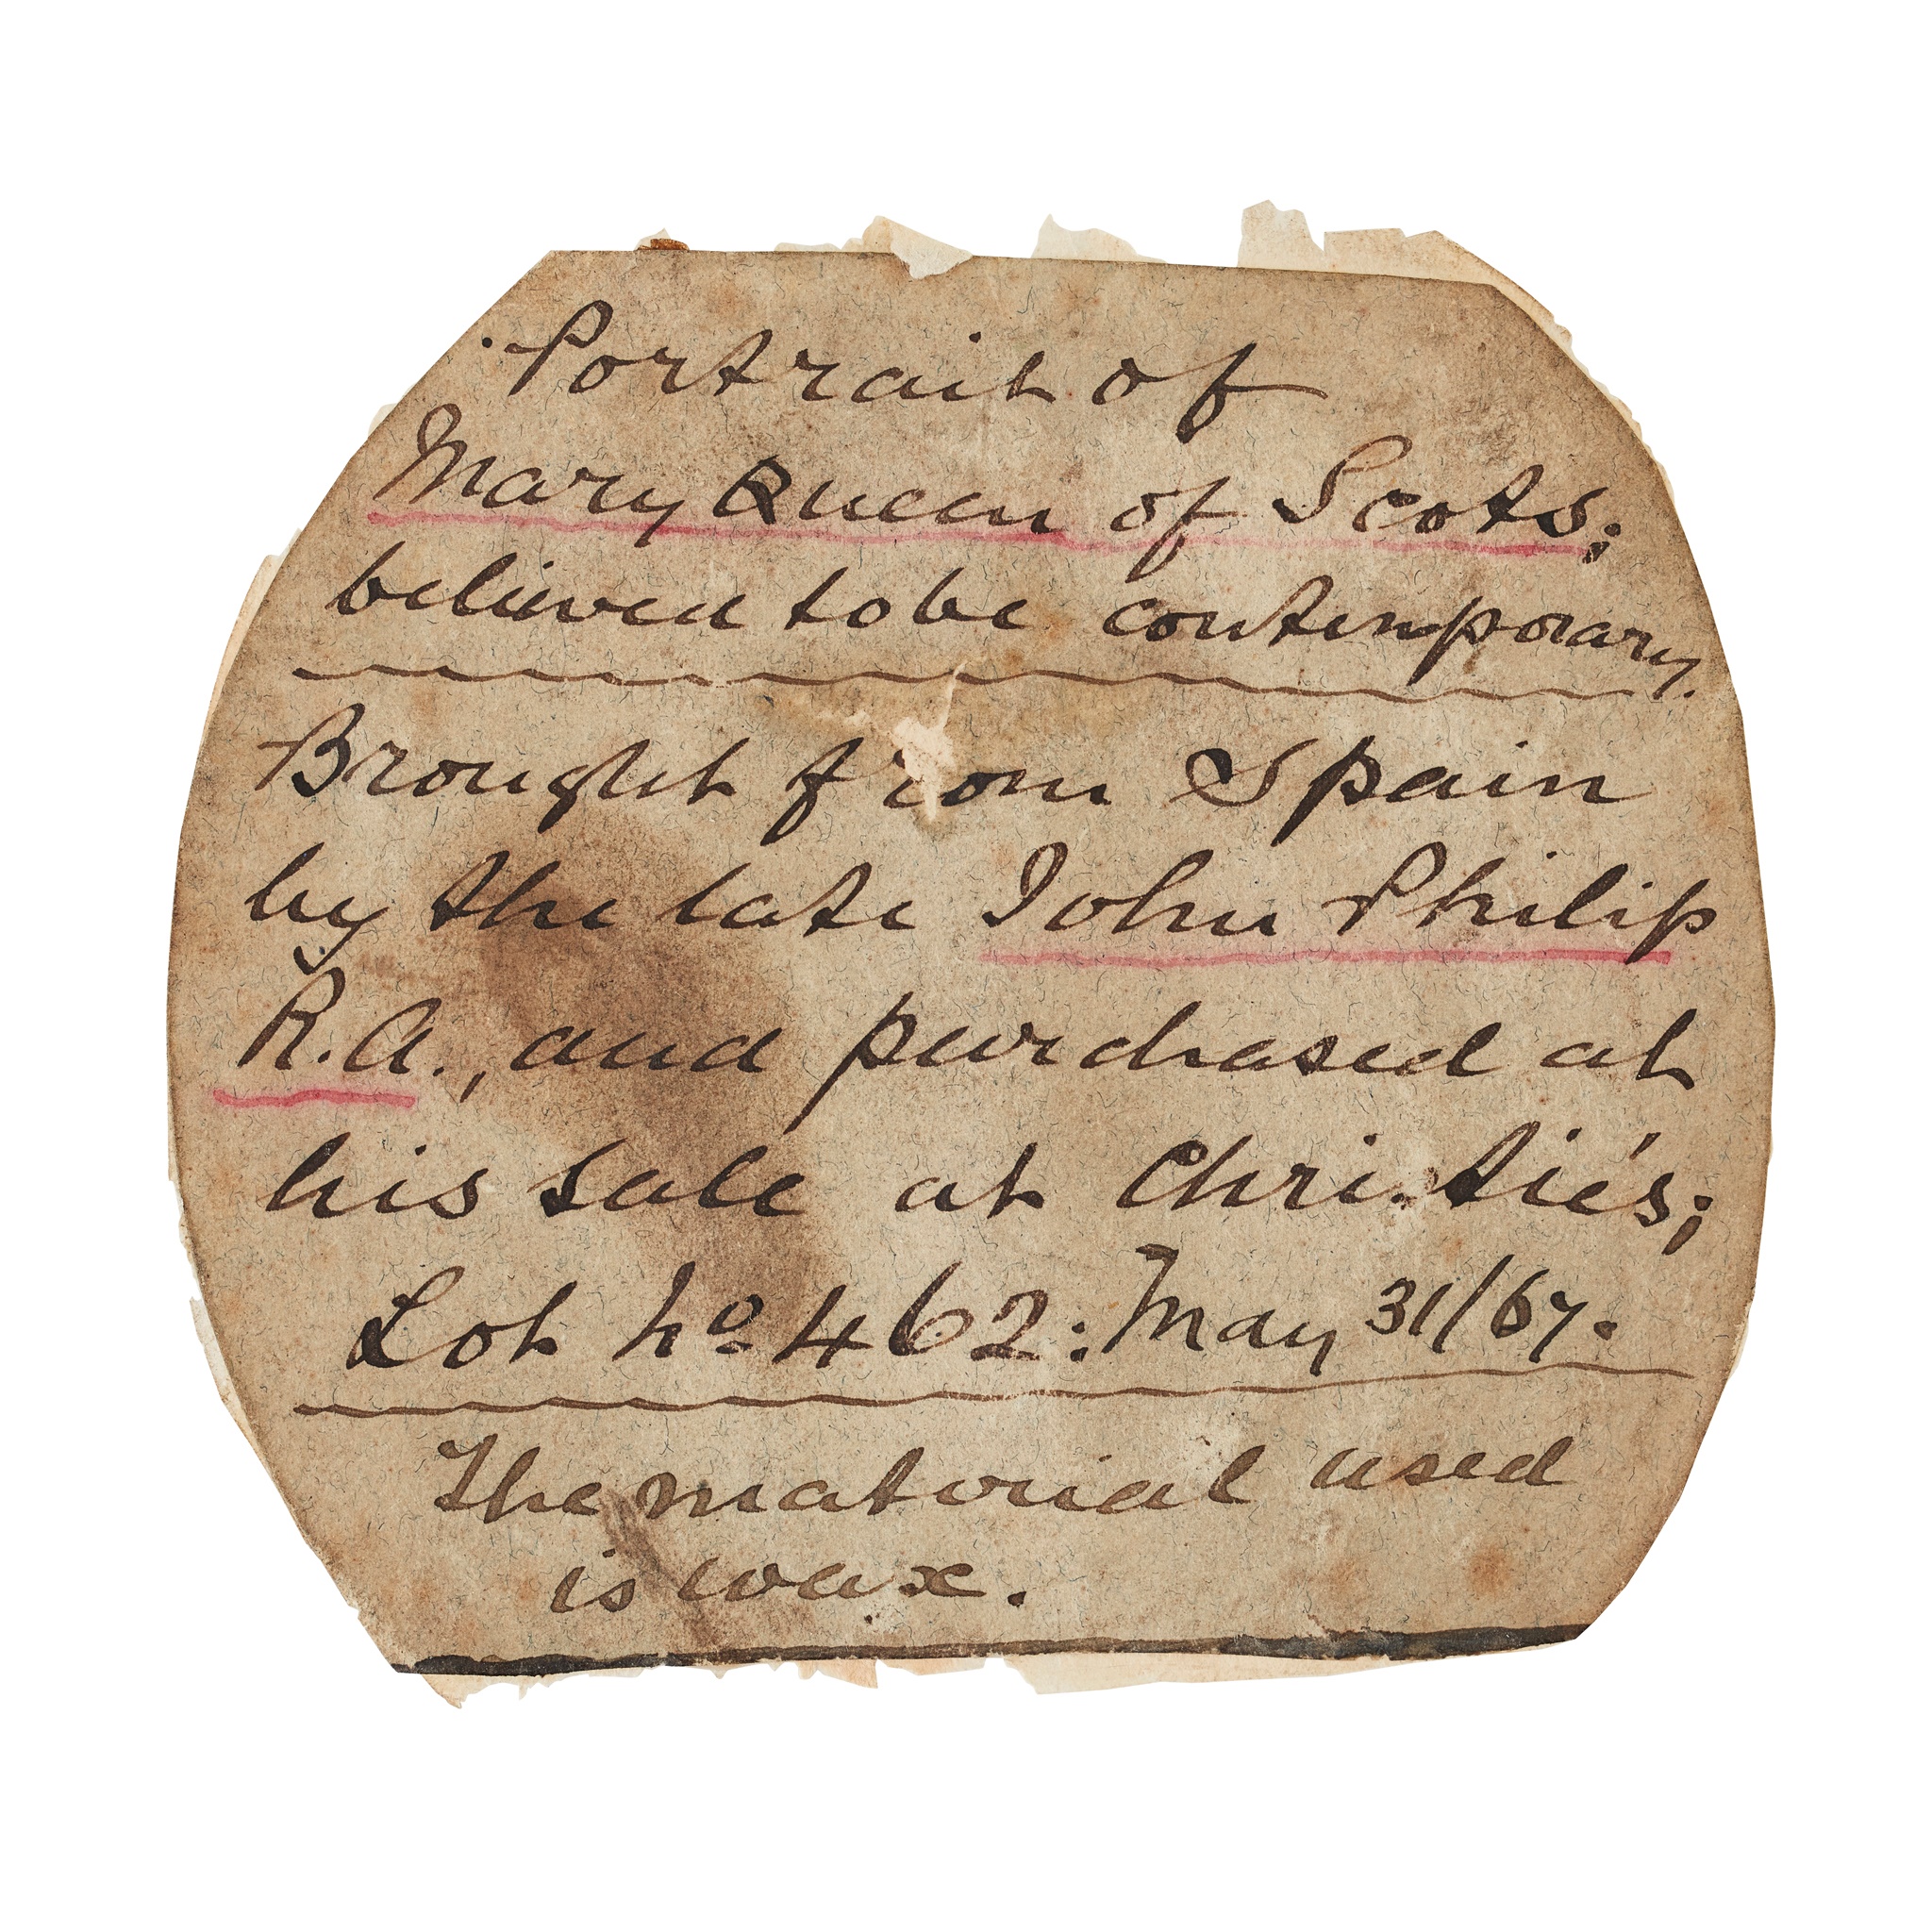 Portrait of
Mary Queen of Scots;
believed to be contemporary.
Brought from Spain
by the late John Philip
R.A., and purchased at
his sale at Christie's;
Lot No 462: May 31/67.
The material used
is wax.